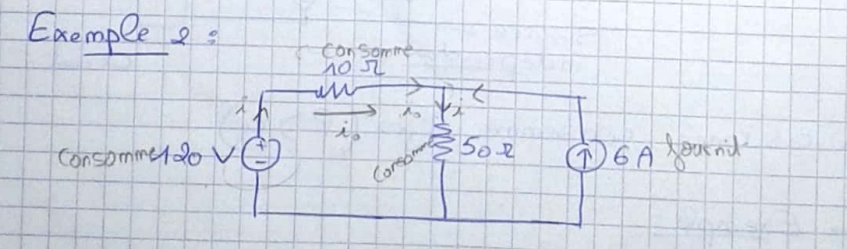 Exemple 2 :
consomme
10 Ω
i
i₀
i₀
i
consomme 120 V
+
-
consomme
50 Ω
6A fournit